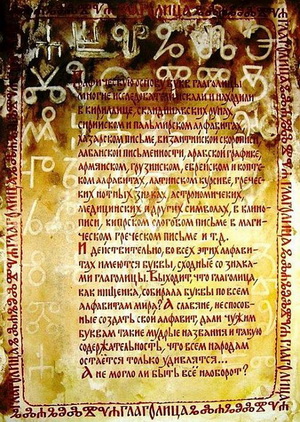 ГЛАГОЛИЦА
многие исследователи искали и находили
в кириллице, скандинавских рунах,
сирийском и пальмирском алфавитах
хазарском письме, византийской скорописи,
албанской письменности, арабской графике,
армянском, грузинском, еврейском и коптс-
ком алфавитах, латинском курсиве, гречес-
ких нотных знаках, астрономических,
медицинских и других символах, в клино-
писи, кипрском слоговом письме в маги-
ческом греческом письме и т.д.
И действительно, во всех этих алфави-
тах имеются буквы, сходные со знака-
ми глаголицы. Выходит, что глаголица
как нищенка, собирала буквы по всем
алфавитам мира? А славяне, неспособ-
ные создать свой алфавит, дали чужим
буквам такие мудрые названия и такую
содержательность, что всем народам
остаётся только удивляться...
А не могло ли быть всё наоборот?
ГЛАГОЛИЦА
ГЛАГОЛИЦА
ГЛАГОЛИЦА